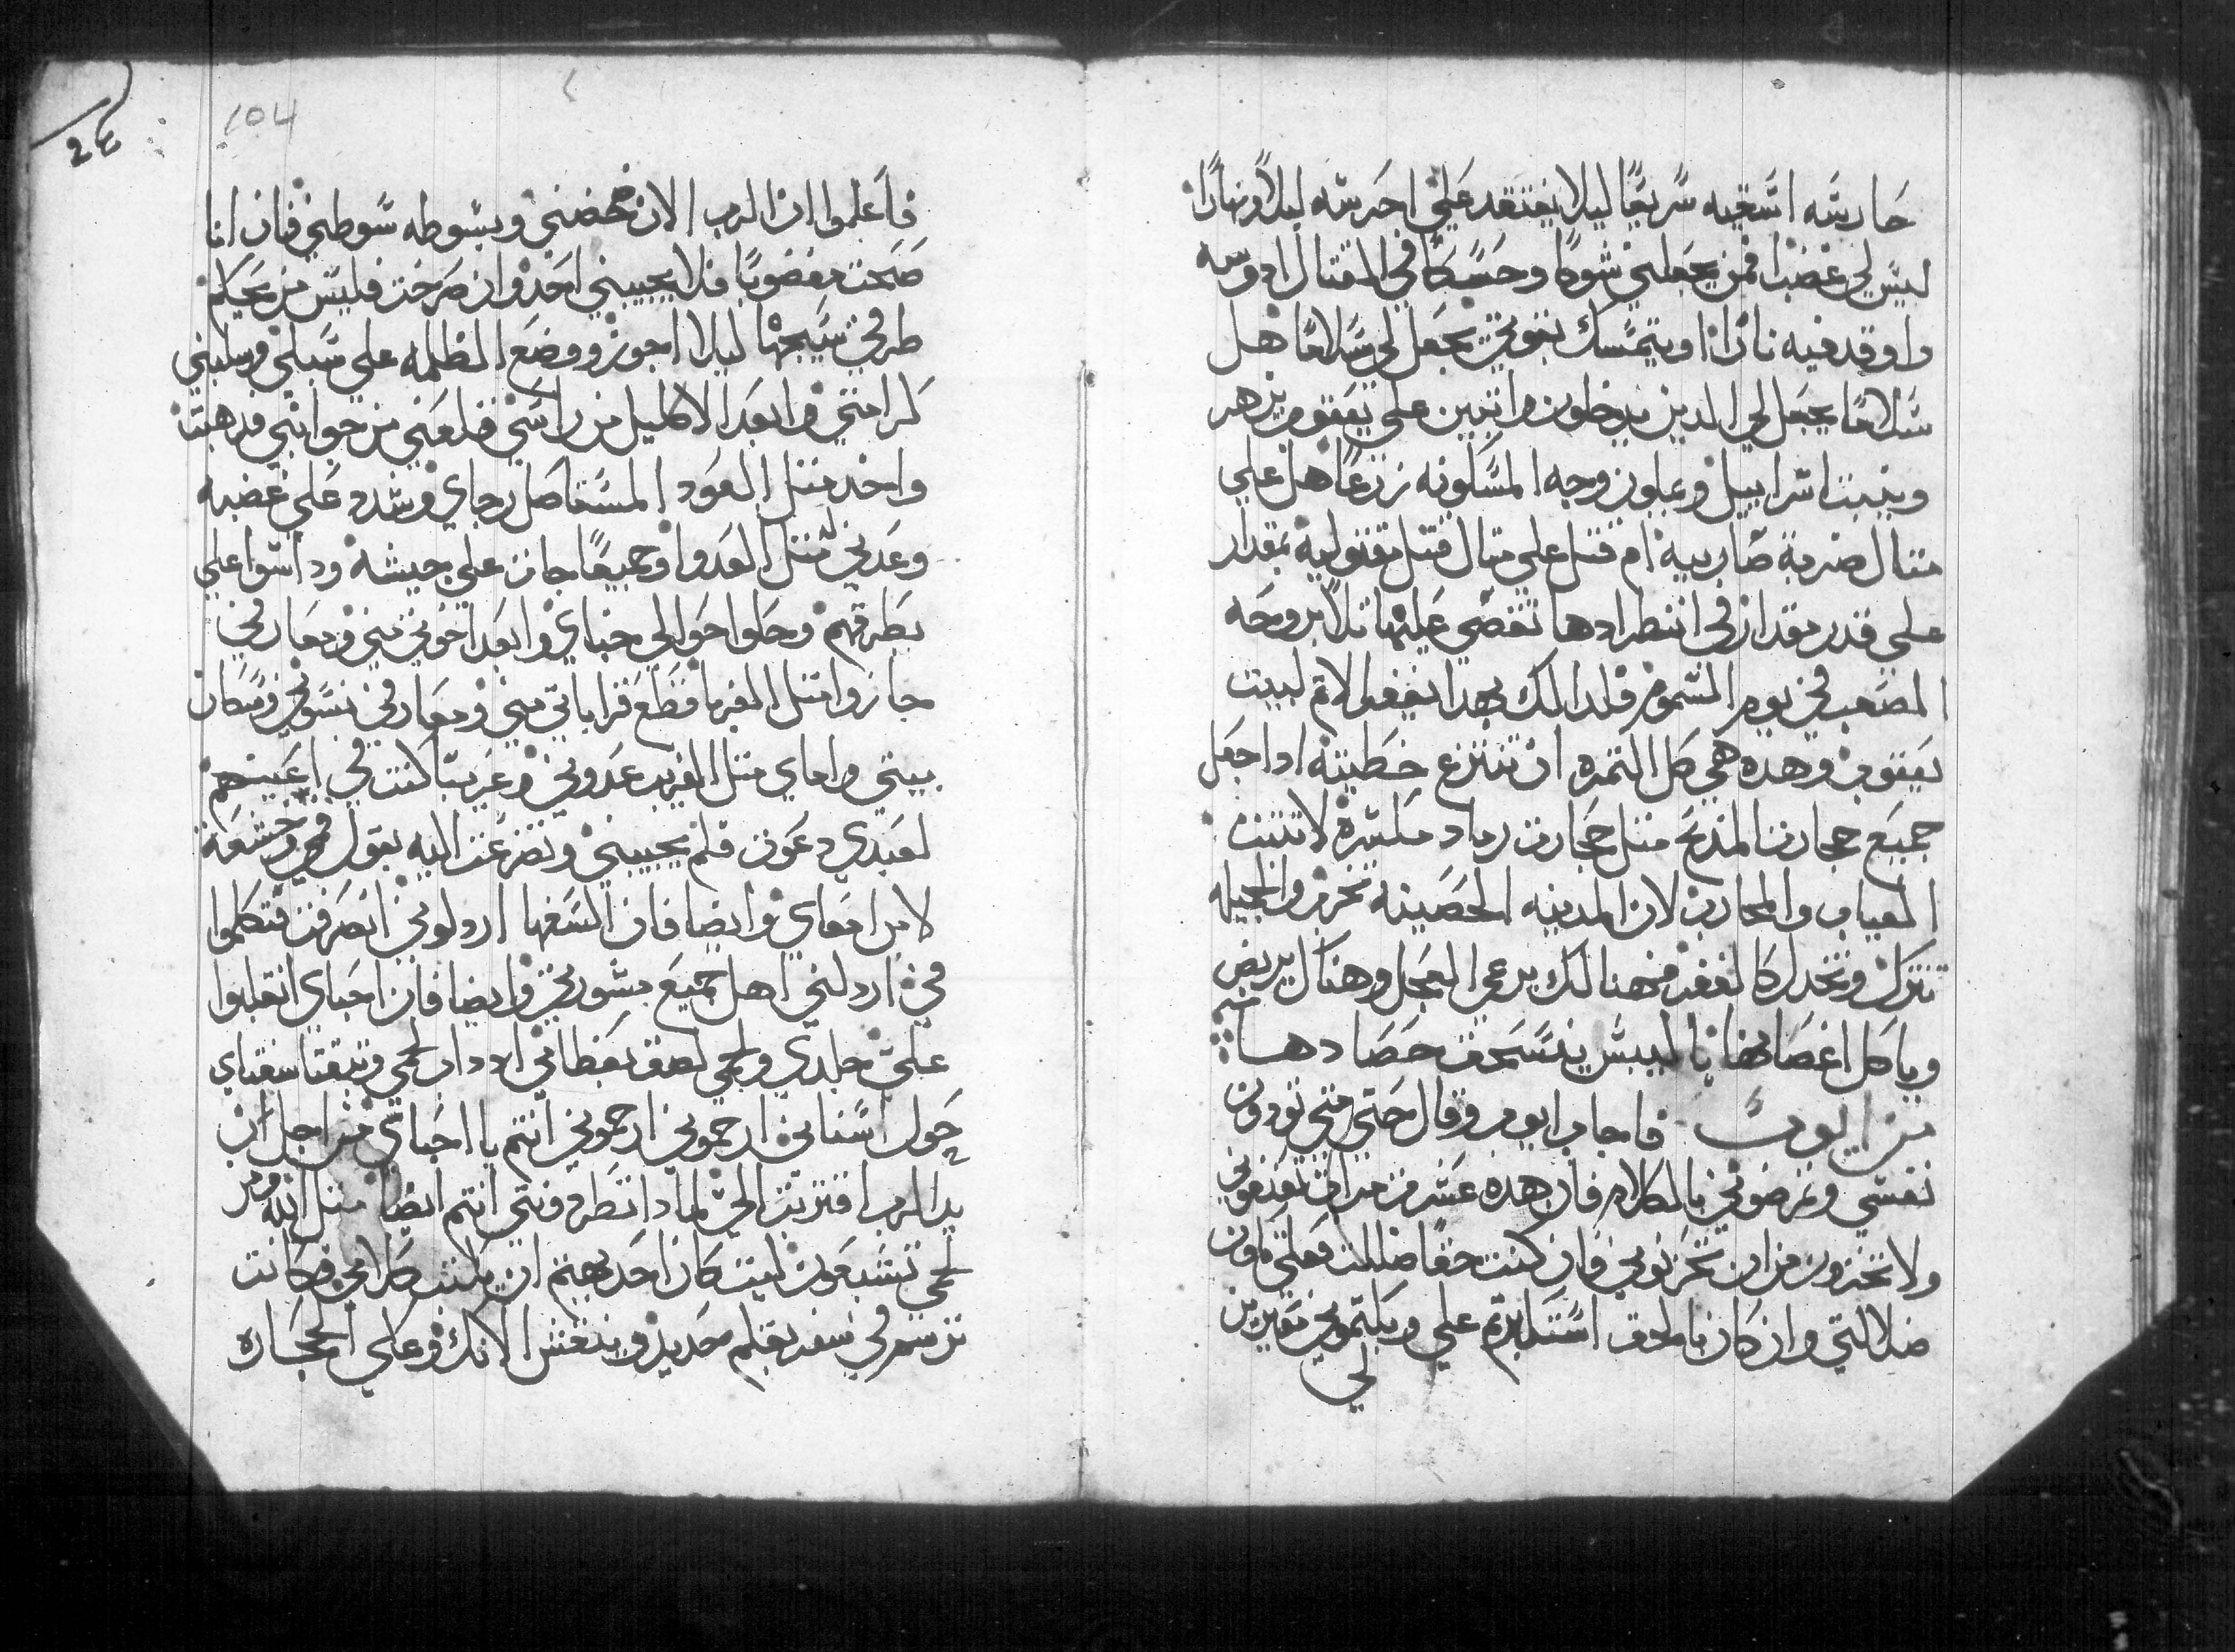 حارسه اسقيه سريعًا ليلا يفتقد علي احرسه ليلاً ونهارًا
ليس لي غضب فمن يجعلني شوكا وحسكا في القتال ادوسه
واوقد فيه نارًا او يتمسك بقوتي يجعل لي سلامًا هل
سلامًا يجعل لي الدين يدخلون واثبين علي يعقوب يزهر
وينبت اسراييل ويملون وجه المسكونه زرعًا هل علي
متال ضربة ضاربيه ام قتل علي متال قتل مقتوليه بمقدار
علي قدر مقدار في انطرادها تقضي عليها تلا بروحه
الصعب في يوم السموم فلدالك بهدا يغفر الاثم لبيت
يعقوب وهده هي كل التمره ان تنتزع خطيته ادا جعل
جميع حجارت المدبح متل حجارت رماد مكسره لا تتبت
الغياب والمحارب لان المدينه الحصينه تخرب والجميله
تترك وتخدل كالقفر فهنالك يرعي العجل وهناك يربض
وياكل اغصانها باليبس ينسحق حصادها
من ايوب فاجاب ايوب وقال حتي متي تودون
نفسي وترضوني بالكلام فان هده عشر مرات تعنفوني
ولا تخزون من ان تحزنوني فان كنت حقا ضللت فعلي تكون
ضلالتي وان كان بالحق استكبرتم علي وبكتموني تعيرين
لي
104
24
فاعلموا ان الرب الان خضني وبسوطه سوطني فان انا
صحت مغضوبًا فلا يجيبني احد وان صرخت فليس من يحكم
طرقي سيجها ليلا اجوز ووضع الظلمه علي سبلي وسلبني
كرامتي وابعد الاكليل من راسي قلعني من جوانبي فدهبت
واخد متل العود المستاصل رجاي وشدد علي غضبه
وعدني متل العدو وجميعًا جات علي جيشه وداسوا علي
بطرقهم وحلوا حوالي خباي وابعد اخوتي مني ومعارفي
جازوا متل الغربا قطع قراباتي مني ومعارفي نسوني وسكان
بيتي واماي متل الغريب عدوني وغريبًا كنت في اعينهم
لعبدي دعوت فلم يجيبني وتضرعت اليه بقول فمي وخشعة
لامراتي وايضا فان السفها اردلوني انصرفت فتكلموا
في اردلني اهل جميع مشورتي وايضا فان احباي انقلبوا
علي جلدي ولحمي لصق بعظامي ودار لحمي وتبقتا شفتاي
حول اسناني ارحموني ارحموني انتم يا احباي من اجل ان
يد الرب اقتربت الي لمادا تطردوني انتم ايضا متل الله ومن
لحمي تشبعون ليت كان احد يهبني ان يكتب كلامي وكانت
ترسم في سفر بقلم حديد وبنقش الانك وعلي الحجاره